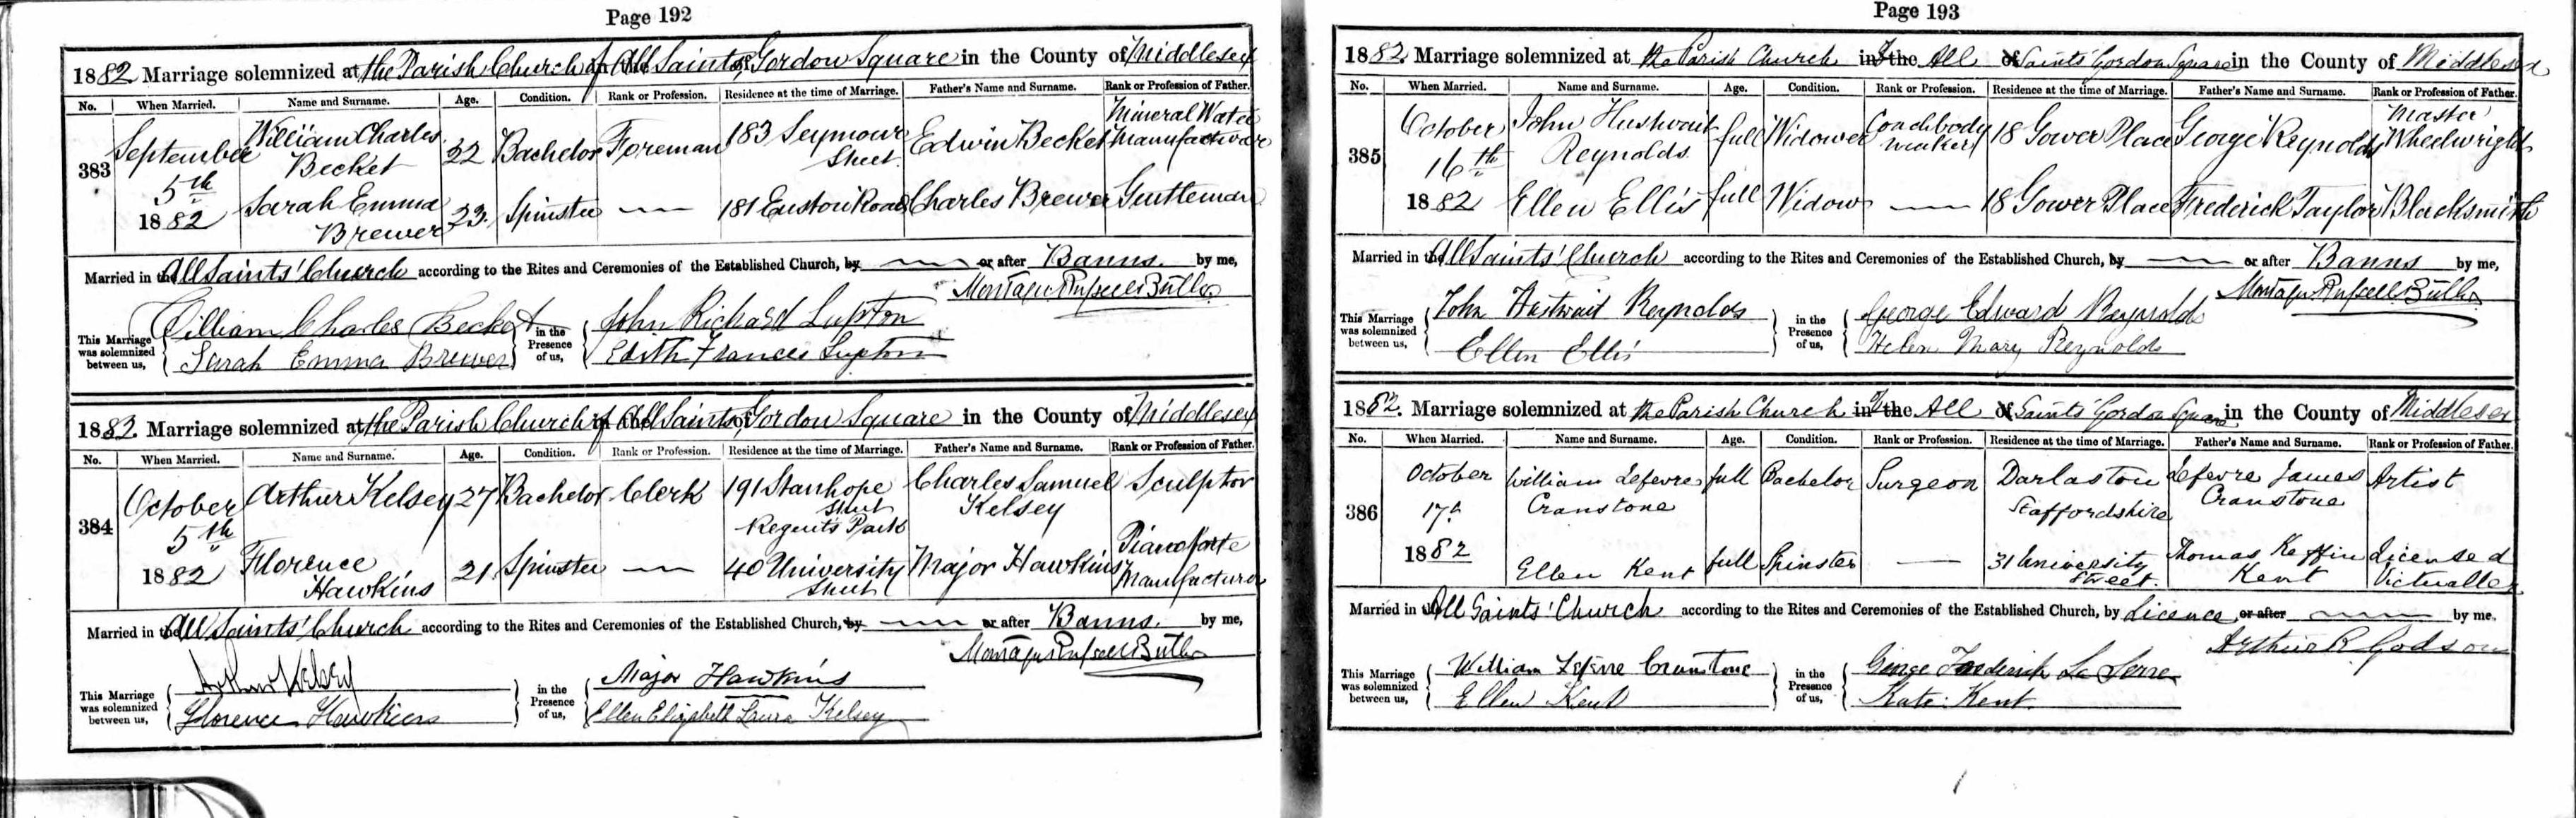 Page 192
1882 Marriage solemnized at the Parish Church of All Saints, Gordon Square in the County of Middlesex
No. When Married. Name and Surname. Age. Condition. Rank or Profession. Residence at the time of Marriage. Father's Name and Surname. Rank or Profession of Father.
383 September 5th 1882
William Charles Becket 22 Bachelor Foreman 183 Seymour Street Edwin Becket Mineral Water Manufacturer
Sarah Emma Brewer 23. Spinster — 181 Euston Road Charles Brewer Gentleman
Married in the All Saints' Church according to the Rites and Ceremonies of the Established Church, by — or after Banns. by me,
Montagu Russell Butler
This Marriage was solemnized between us, William Charles Becket in the Presence of us, John Richard Lupton
Sarah Emma Brewer Edith Frances Lupton
1882. Marriage solemnized at the Parish Church of All Saints, Gordon Square in the County of Middlesex
No. When Married. Name and Surname. Age. Condition. Rank or Profession. Residence at the time of Marriage. Father's Name and Surname. Rank or Profession of Father.
384 October 5th 1882
Arthur Kelsey 27 Bachelor Clerk 191 Stanhope Street Regents Park Charles Samuel Kelsey Sculptor
Florence Hawkins 21 Spinster — 40 University Street Major Hawkins Pianoforte Manufacturer
Married in the All Saints' Church according to the Rites and Ceremonies of the Established Church, by — or after Banns. by me,
Montagu Russell Butler
This Marriage was solemnized between us, Arthur Kelsey in the Presence of us, Major Hawkins
Florence Hawkins Ellen Elizabeth Laura Kelsey
Page 193
1882. Marriage solemnized at the Parish Church in the All of Saints' Gordon Square in the County of Middlesex
No. When Married. Name and Surname. Age. Condition. Rank or Profession. Residence at the time of Marriage. Father's Name and Surname. Rank or Profession of Father.
385 October 16th 1882
John Hustwait Reynolds full Widower Coachbody maker 18 Gower Place George Reynolds Master Wheelwright
Ellen Ellis full Widow — 18 Gower Place Frederick Taylor Blacksmith
Married in the All Saints' Church according to the Rites and Ceremonies of the Established Church, by — or after Banns by me,
Montagu Russell Butler
This Marriage was solemnized between us, John Hustwait Reynolds in the Presence of us, George Edward Reynolds
Ellen Ellis Helen Mary Reynolds
1882. Marriage solemnized at the Parish Church in the All of Saints' Gordon Square in the County of Middlesex
No. When Married. Name and Surname. Age. Condition. Rank or Profession. Residence at the time of Marriage. Father's Name and Surname. Rank or Profession of Father.
386 October 17th 1882
William Lefevre Cranstone full Bachelor Surgeon Darlaston Staffordshire Lefevre James Cranstone Artist
Ellen Kent full Spinster — 31 University Street. Thomas Kent Licensed Victualler
Married in the All Saints' Church according to the Rites and Ceremonies of the Established Church, by Licence or after — by me,
Arthur R Godson
This Marriage was solemnized between us, William Lefevre Cranstone in the Presence of us, George Frederick
Ellen Kent Kate Kent